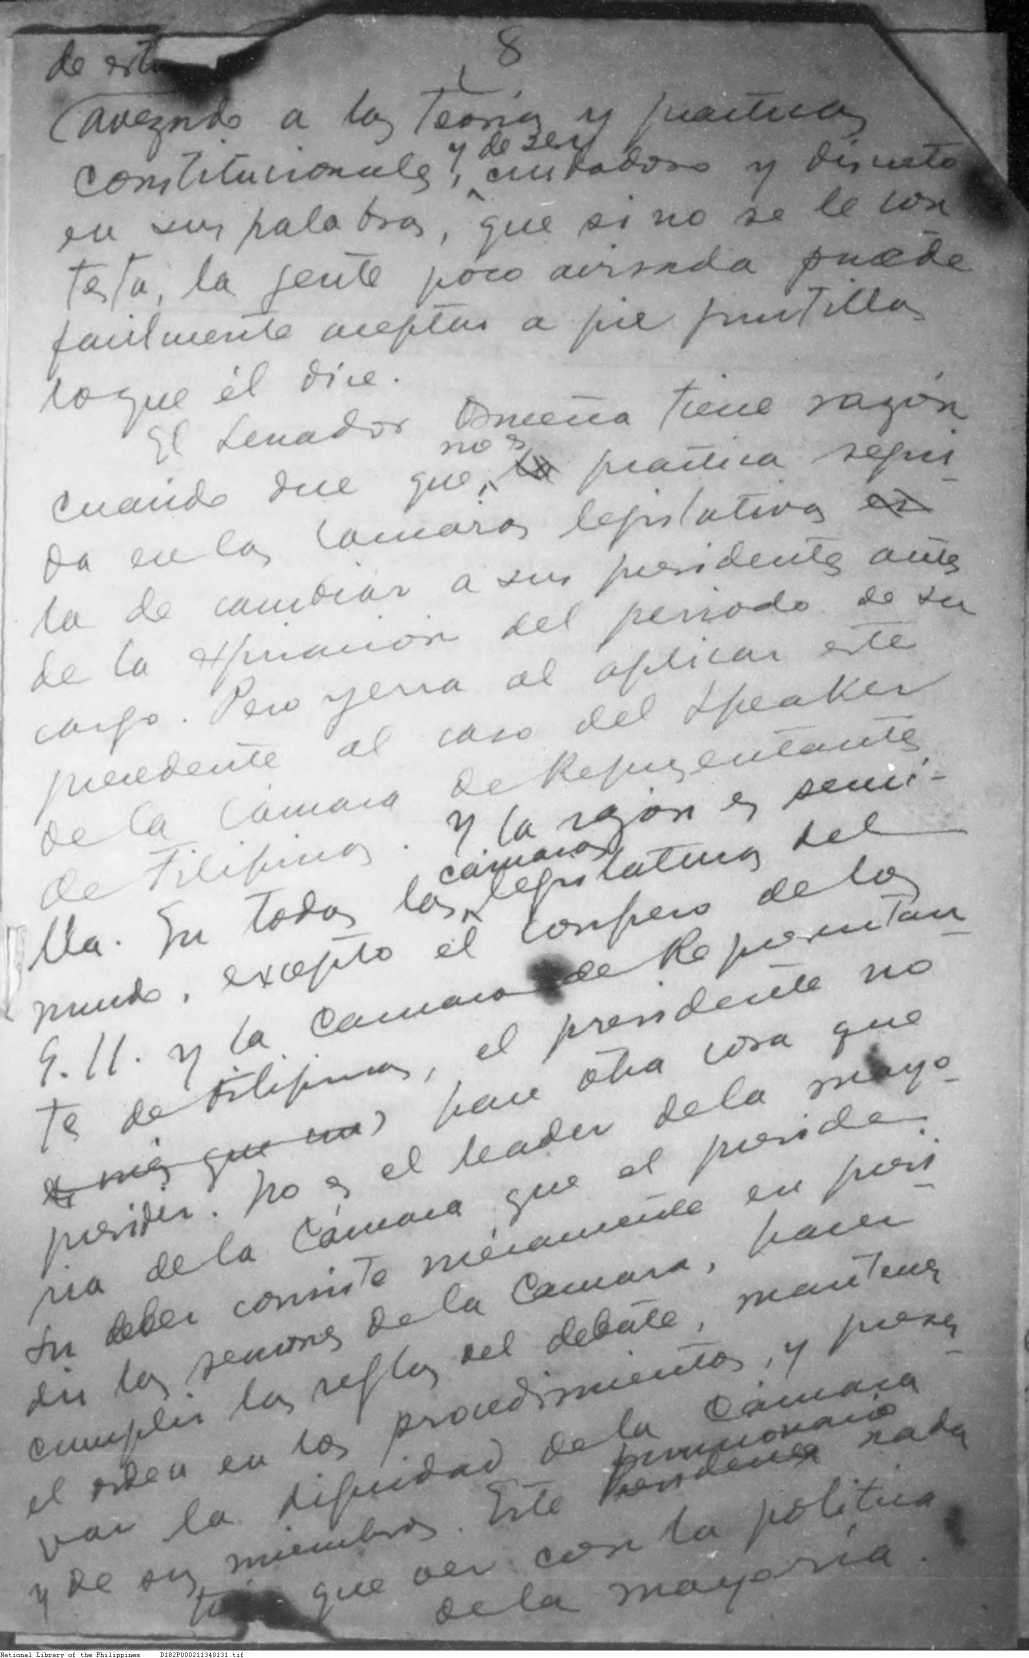 8
de estu
avezado a las teorías y practicas
constitucionales, y de ser cuidadoso y discreto
en sus palabras, que si no se le con
testa, la gente poco avisada puede
facilmente aceptar a pie puntillas
lo que él dice.
El Senador Osmeña tiene razón
cuando dice que no es la practica segui-
da en las Camaras legislativas es
la de cambiar a sus presidentes antes
de la expiración del periodo de su
cargo. Pero yerra al aplicar este
precedente al caso del Speaker
de la Cámara de Representantes
de Filipinas. Y la razón es senci-
lla. En todas las cámaras legislativas del
mundo, excepto el Congreso de los
E.U. y la Camara de Representan-
tes de Filipinas, el presidente no
es más que un hace otra cosa que
presidir. No es el leader de la mayo-
ria de la Cámara que el preside.
Su deber consiste meramente en presi-
dir las sesiones de la Camara, hacer
cumplir las reglas del debate, mantener
el orden en los procedimientos, y preser-
var la dignidad de la Cámara
y de sus miembros. Este funcionario Presidente nada
tiene que ver con la politica
de la mayoría.
National Library of the Philippines D182P000211340131.tif